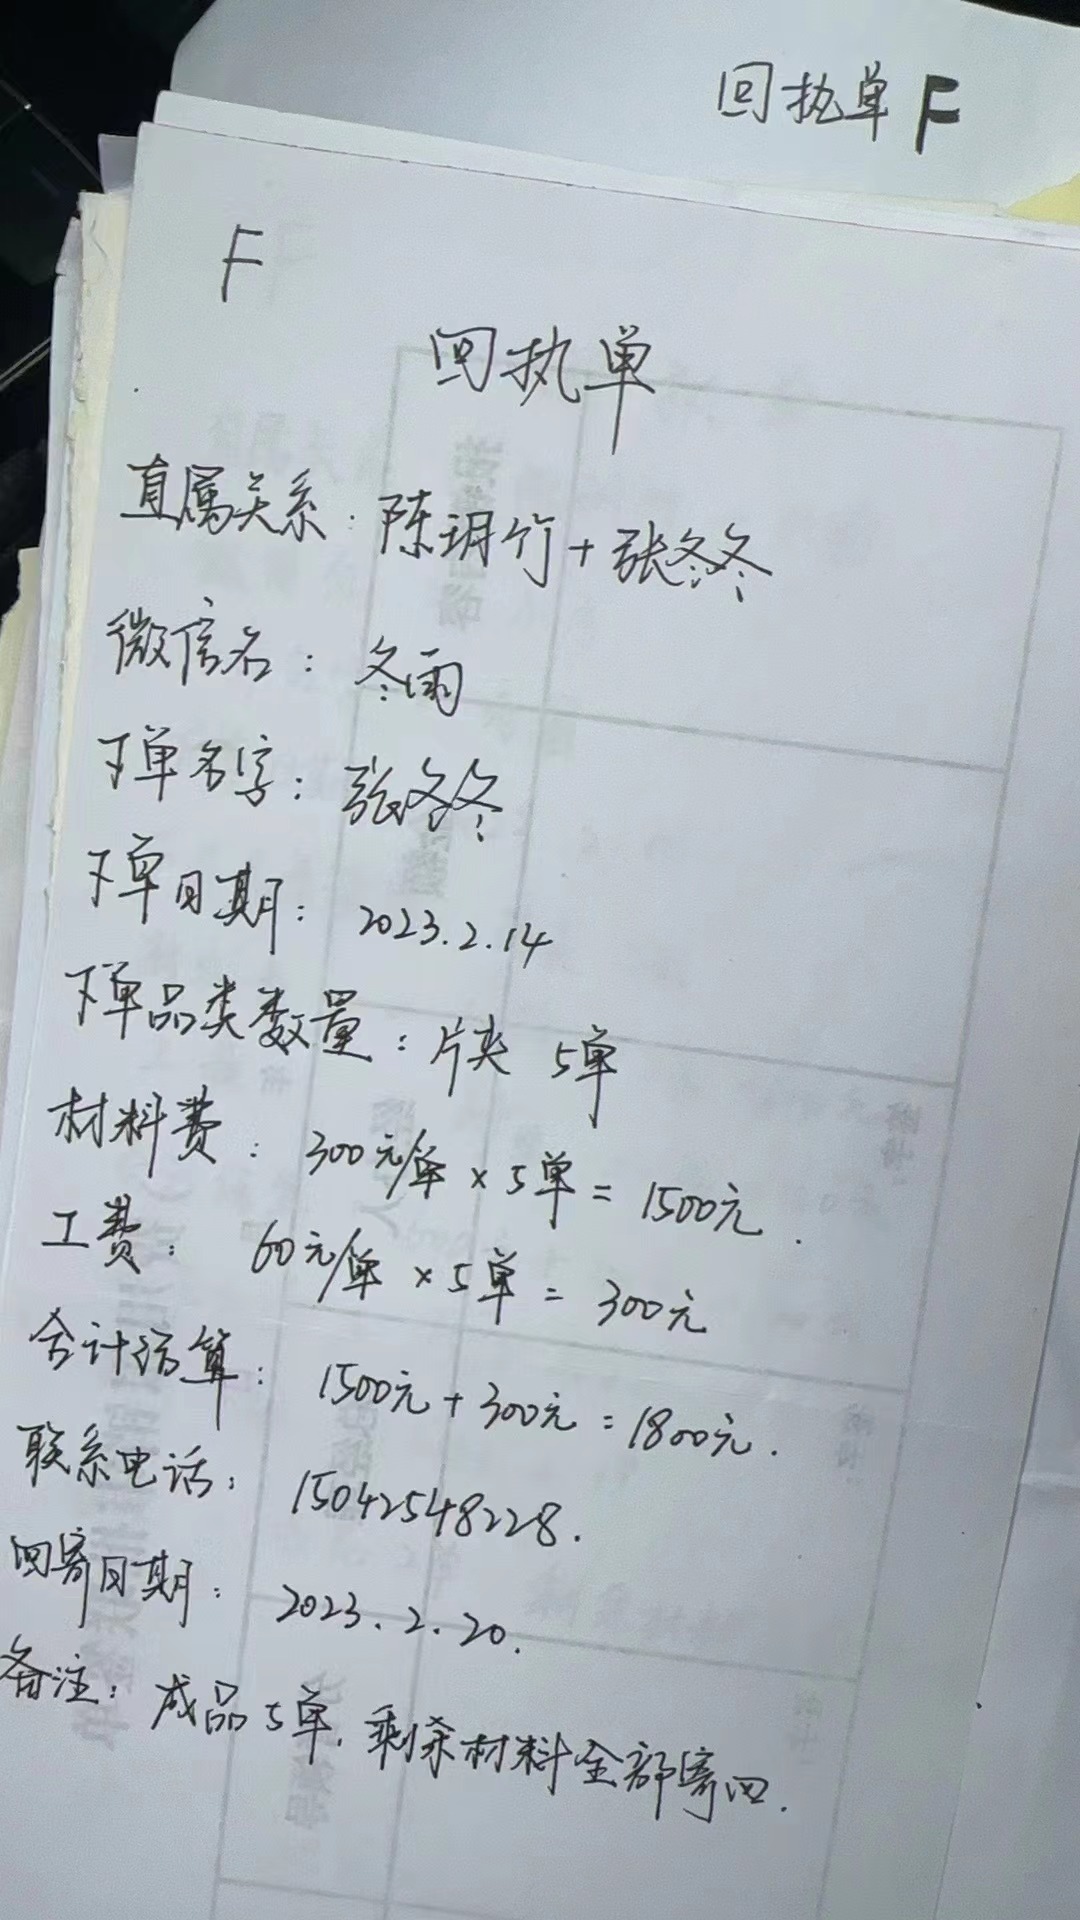 回执单 F
F
回执单
直属关系: 陈玥竹+张冬冬
微信名: 冬雨
下单名字: 张冬冬
下单日期: 2023.2.14
下单品类数量: 片夹 5单
材料费: 300元/单 × 5单 = 1500元.
工费: 60元/单 × 5单 = 300元
合计结算: 1500元 + 300元 = 1800元.
联系电话: 15042548228.
回寄日期: 2023.2.20.
备注: 成品5单, 剩余材料全部寄回.